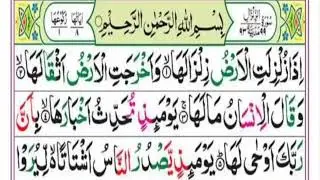 بِسْمِ اللهِ الرَّحْمٰنِ الرَّحِيْمِ
اِذَا زُلْزِلَتِ الْاَرْضُ زِلْزَالَهَا ۙ وَاَخْرَجَتِ الْاَرْضُ اَثْقَالَهَا ۙ
وَقَالَ الْاِنْسَانُ مَا لَهَا ۚ يَوْمَئِذٍ تُحَدِّثُ اَخْبَارَهَا ۙ بِاَنَّ
رَبَّكَ اَوْحٰى لَهَا ؕ يَوْمَئِذٍ يَّصْدُرُ النَّاسُ اَشْتَاتًا ۙ لِّيُرَوْا